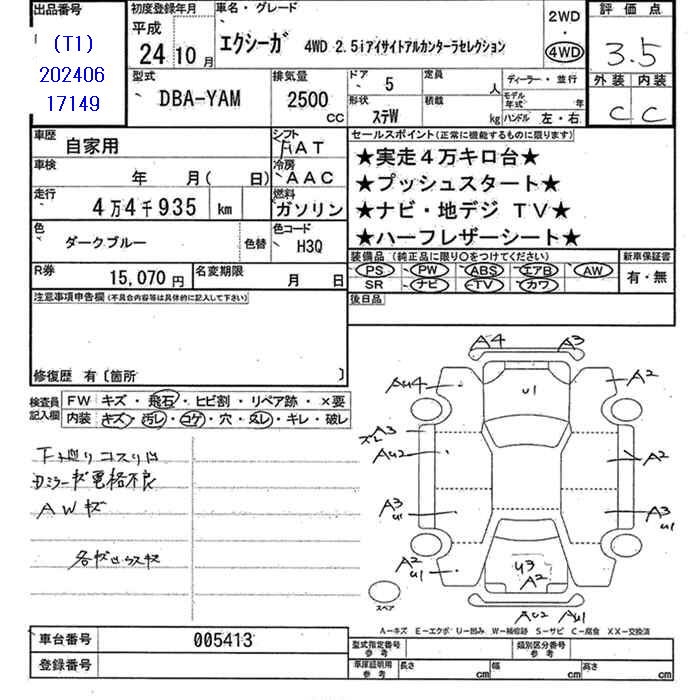 出品番号
(T1)
202406
17149
初度登録年月
平成
24 10月
車名・グレード
エクシーガ 4WD 2.5iアイサイトアルカンターラセレクション
2WD
・
4WD
評価点
3.5
型式
DBA-YAM
排気量
2500
CC
ドア 5
形状 ステW
定員 人
積載 kg
ディーラー・並行
モデル年式 年
ハンドル 左・右
外装 内装
C C
車歴 自家用
シフト FAT
車検 年 月( 日)
冷房 AAC
走行 4万4千935 km
燃料 ガソリン
色 ダークブルー 色替
色コード H3Q
R券 15,070円
名変期限 月 日
セールスポイント(正常に機能するものに限ります)
★実走4万キロ台★
★プッシュスタート★
★ナビ・地デジ TV★
★ハーフレザーシート★
装備品(純正品に限り○をつけてください)
PS PW ABS エアB AW
SR ナビ TV カワ
新車保証書
有・無
後日品
注意事項申告欄(不具合内容等は具体的に記入して下さい)
修復歴 有〔箇所 〕
検査員記入欄
FW キズ・飛石・ヒビ割・リペア跡・×要
内装 キズ・汚レ・コゲ・穴・スレ・キレ・破レ
下廻りコスリ
ミラーキズ電格不良
AWキズ
A4 A3
AU4 U1 A2
A3
スレ
AU2 A2
A3 U1
A3 U1
A2 U1
U3
A2
AU2 AU1
スペア
A-キズ E-エクボ U-凹み W-補修跡 S-サビ C-腐食 XX-交換済
車台番号 005413
登録番号
型式指定番号 参考
類別区分番号 参考
車庫証明用 参考 長さ cm 幅 cm 高さ cm